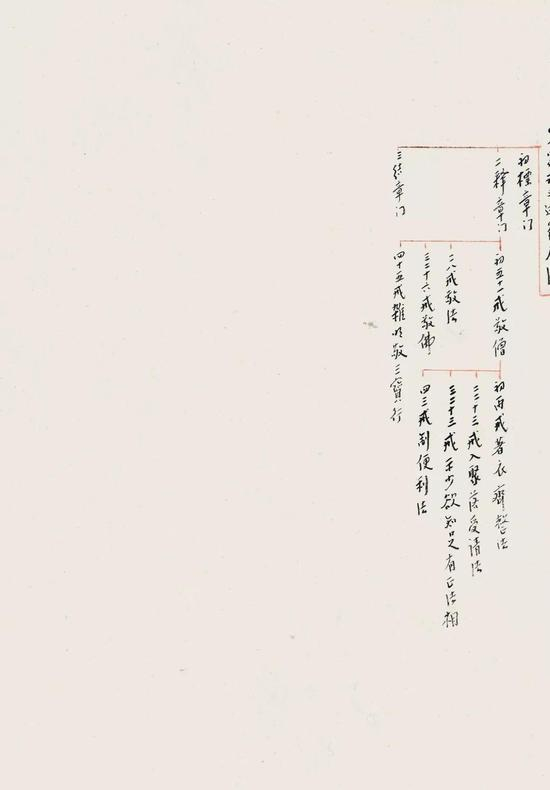 初標章门
二釋章门
三結章门
初五十一戒敬僧
二八戒敬法
三二十六戒敬佛
四十五戒雜明敬三寶行
初兩戒著衣齊整法
二二十三戒入聚落受請法
三二十三戒示少欲知足有正法相
四三戒制便利法